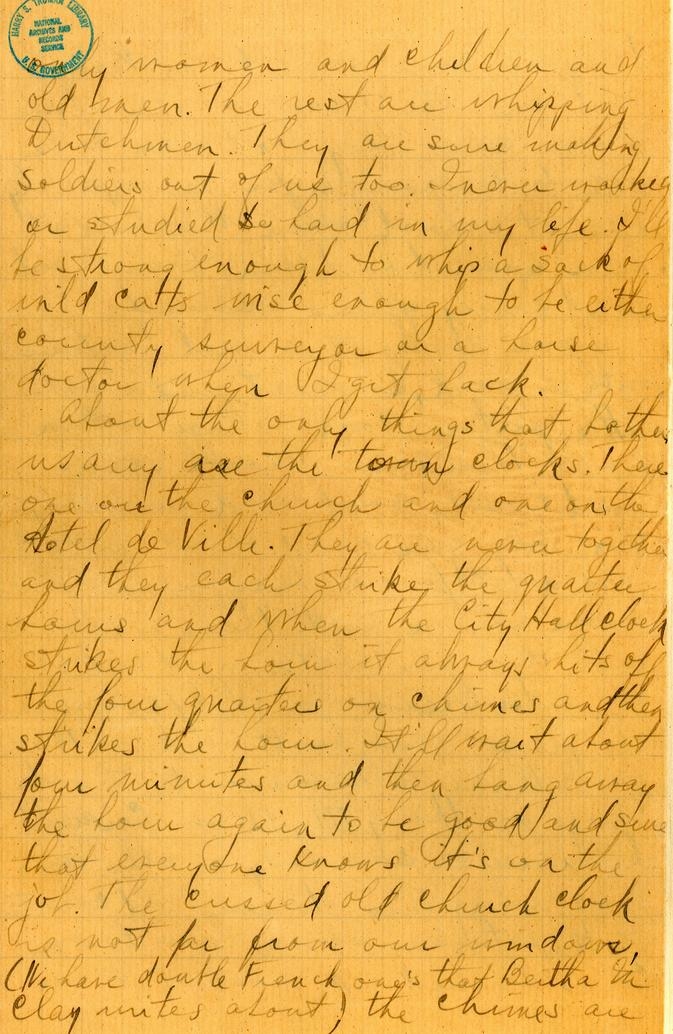 HARRY S. TRUMAN LIBRARY
NATIONAL
ARCHIVES AND
RECORDS
SERVICE
U.S. GOVERNMENT
only women and children and
old men. The rest are whipping
Dutchmen. They are sure making
soldiers out of us too. I never worked
or studied so hard in my life. I'll
be strong enough to whip a sack of
wild catts wise enough to be either
county surveyor or a horse
doctor when I get back.
About the only things that bother
us any are the town clocks. There
one on the church and one on the
Hotel de Ville. They are never together
and they each strike the quarter
hours and when the City Hall clock
strikes the hour it always hits off
the four quarters on chimes and then
strikes the hour. It'll wait about
four minutes and then bang away
the hour again to be good and sure
that everyone knows it's on the
job. The cussed old church clock
is not far from our windows,
(We have double French one's that Bertha M
Clay writes about) the chimes are